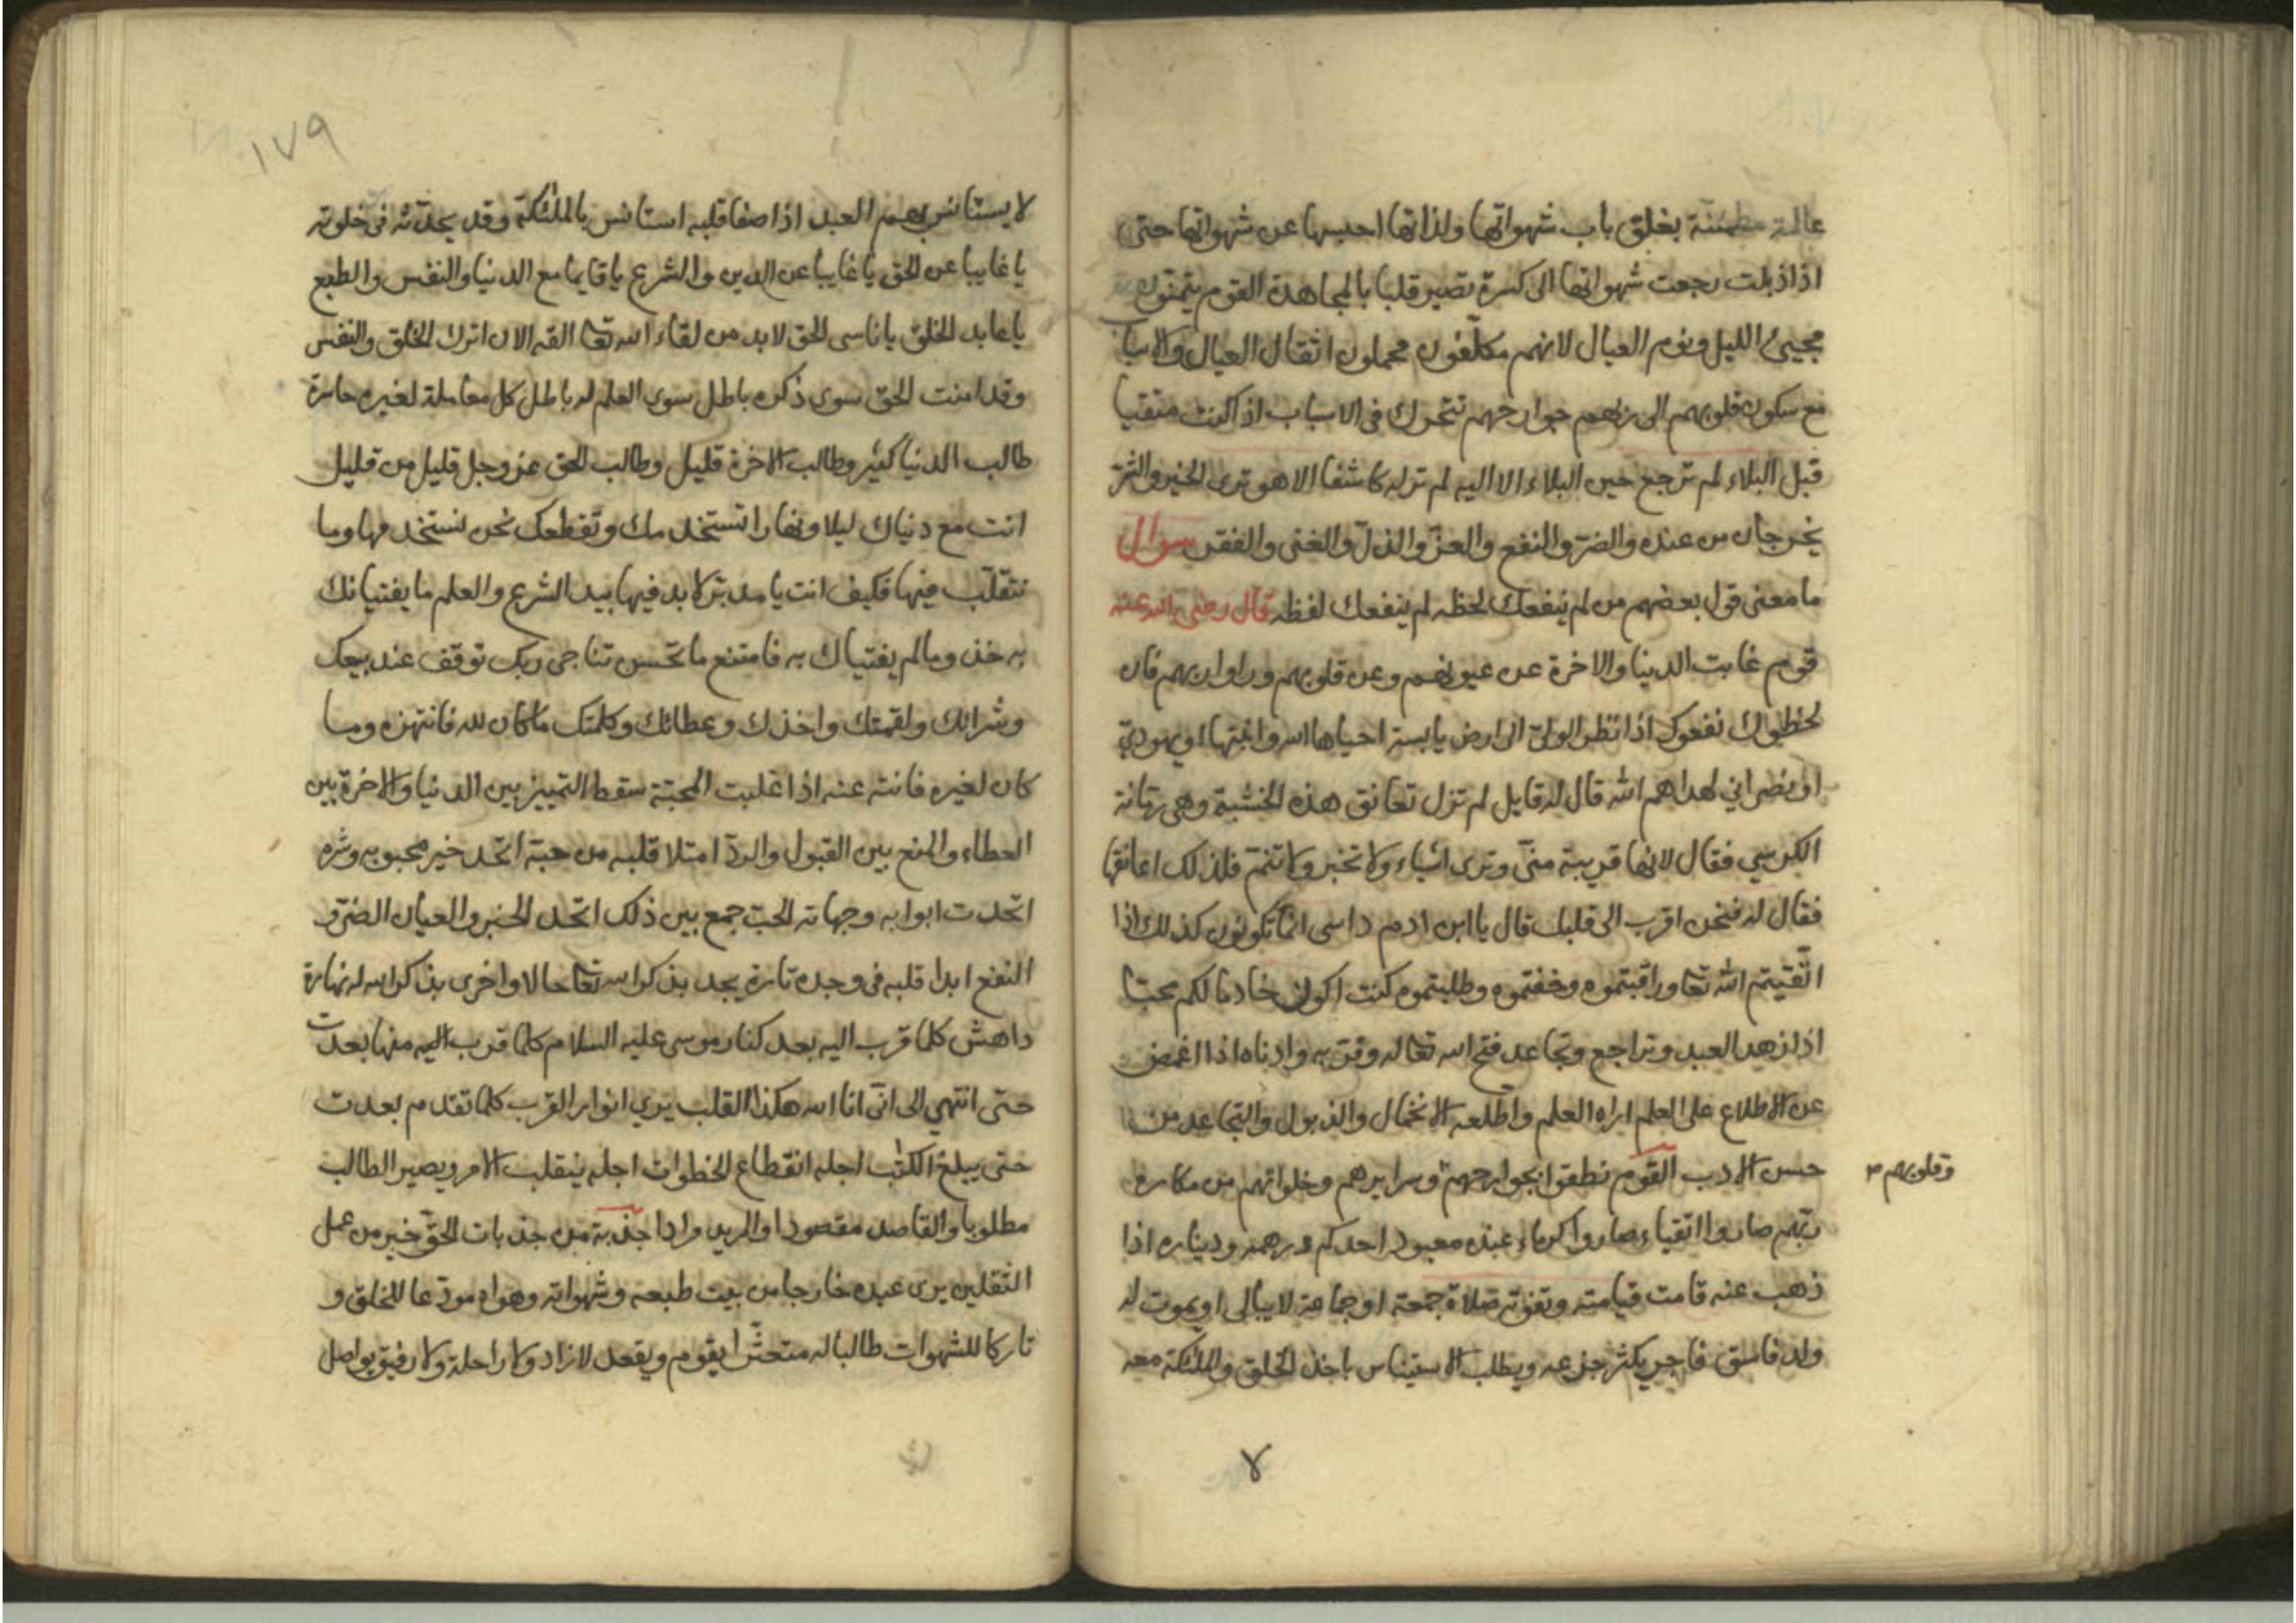 عالمة مطمئنة بغلق باب شهواتها ولذاتها احبسها عن شهواتها حتى
اذا ذبلت رجعت شهواتها الى كسرة تصير قلبا بالمجاهدة القوم يتمنون
مجيئ الليل ونوم العيال لانهم مكلفون محملون اثقال العيال والاسبا
مع سكون قلوبهم الى ربهم جوارحهم تتحرك فى الاسباب اذا كنت متقيا
قبل البلاء لم ترجع حين البلاء الا اليه لم تر له كاشفا الا هو ترى الخير والشر
يخرجان من عنده والضر والنفع والعز والذل والغنى والفقر سوال
ما معنى قول بعضهم من لم ينفعك لحظه لم ينفعك لفظه قال رضى الله عنه
قوم غابت الدنيا والاخرة عن عيونهم وعن قلوبهم وراوا ربهم فان
لحظوك نفعوك اذا نظر الولى الى ارض يابسة احياها الله وانبتها او يهودي
او نصراني لهداهم الله قال له قايل لم تزل تعانق هذه الخشبة وهى رمانة
الكرسي فقال لانها قريبة منى وترى اشياء ولا تخبر ولا تنم فلذلك اعانقها
فقال له فنحن اقرب الى قلبك قال يا ابن ادم راسى انما تكونون كذلك اذا
اتقيتم الله تعا وراقبتموه وخفتموه وطلبتموه كنت اكون خادما لكم محبا
اذا زهد العبد وتراجع وتجاعد فتح الله تعا له وقربه وادناه اذا اغمض
عن الاطلاع على العلم اراه العلم واطلعه الانخمال والذبول والتجاعد من
حسن الادب القوم نطقوا بجوارحهم وسرايرهم وخلواتهم من مكاره
وقلوبهم
ربهم صاروا اتقياء صاروا كرماء عنده معبود احدكم درهمه ودينار اذا
ذهب عنه قامت قيامته وتفوته صلاة جمعة او جماعة لا يبالى او يموت له
ولد فاسق فاجر يكثر جزعه ويطلب الاستيناس باخذ الخلق والملئكة معه
٧
١٧٩
لا يستانس بهم العبد اذا صفا قلبه استانس بالملئكة وقد يحدثه فى خلوته
يا غايبا عن الحق يا غايبا عن الدين والشرع يا قايما مع الدنيا والنفس والطبع
يا عابد الخلق يا ناسى الحق لابد من لقاء الله تعا القه الان اترك الخلق والنفس
وقد امنت الحق سوى ذكره باطل سوى العلم له باطل كل معاملة لغيره خاسرة
طالب الدنيا كثير وطالب الاخرة قليل وطالب الحق عز وجل قليل من قليل
انت مع دنياك ليلا ونهارا تستخدمك وتقطعك نحن نستخدمها وما
نتقلب فيها فكيف انت يا مدبر لا بد فيها بيد الشرع والعلم ما يفتيانك
به خذ وما لم يفتياك به فامتنع ما تحسن تناجى ربك توقف عند بيعك
وشرائك ولقمتك واخذك وعطائك وكلمتك ما كان لله فانتهزه وما
كان لغيره فانته عنه اذا غلبت المحبة سقط التمييز بين الدنيا والاخرة بين
العطاء والمنع بين القبول والرد امتلا قلبه من حبة اتحد خير محبوبه وشره
اتحدت ابوابه وجهاته الحب جمع بين ذلك اتحد الخبر والعيان الضر و
النفع ابدا قلبه فى وجده تارة يجد بذكر الله تعا حالا واخرى بذكر الله له نهارة
داهش كلما قرب اليه بعد كنار موسى عليه السلام كلما قرب اليه منها بعدت
حتى انتهى الى انى انا الله هكذا القلب يري انوار القرب كلما تقدم بعدت
حتى يبلغ الكتب اجله انقطاع الخطوات اجله ينقلب الامر ويصير الطالب
مطلوبا والقاصد مقصودا والمريد مرادا جذبة من جذبات الحق خير من عمل
الثقلين يرى عبده خارجا من بيت طبعه وشهواته وهواه مودعا للخلق و
تاركا للشهوات طالبا له متعثرا يقوم ويقعد لا زاد ولا راحلة ولا رفيق يواصل